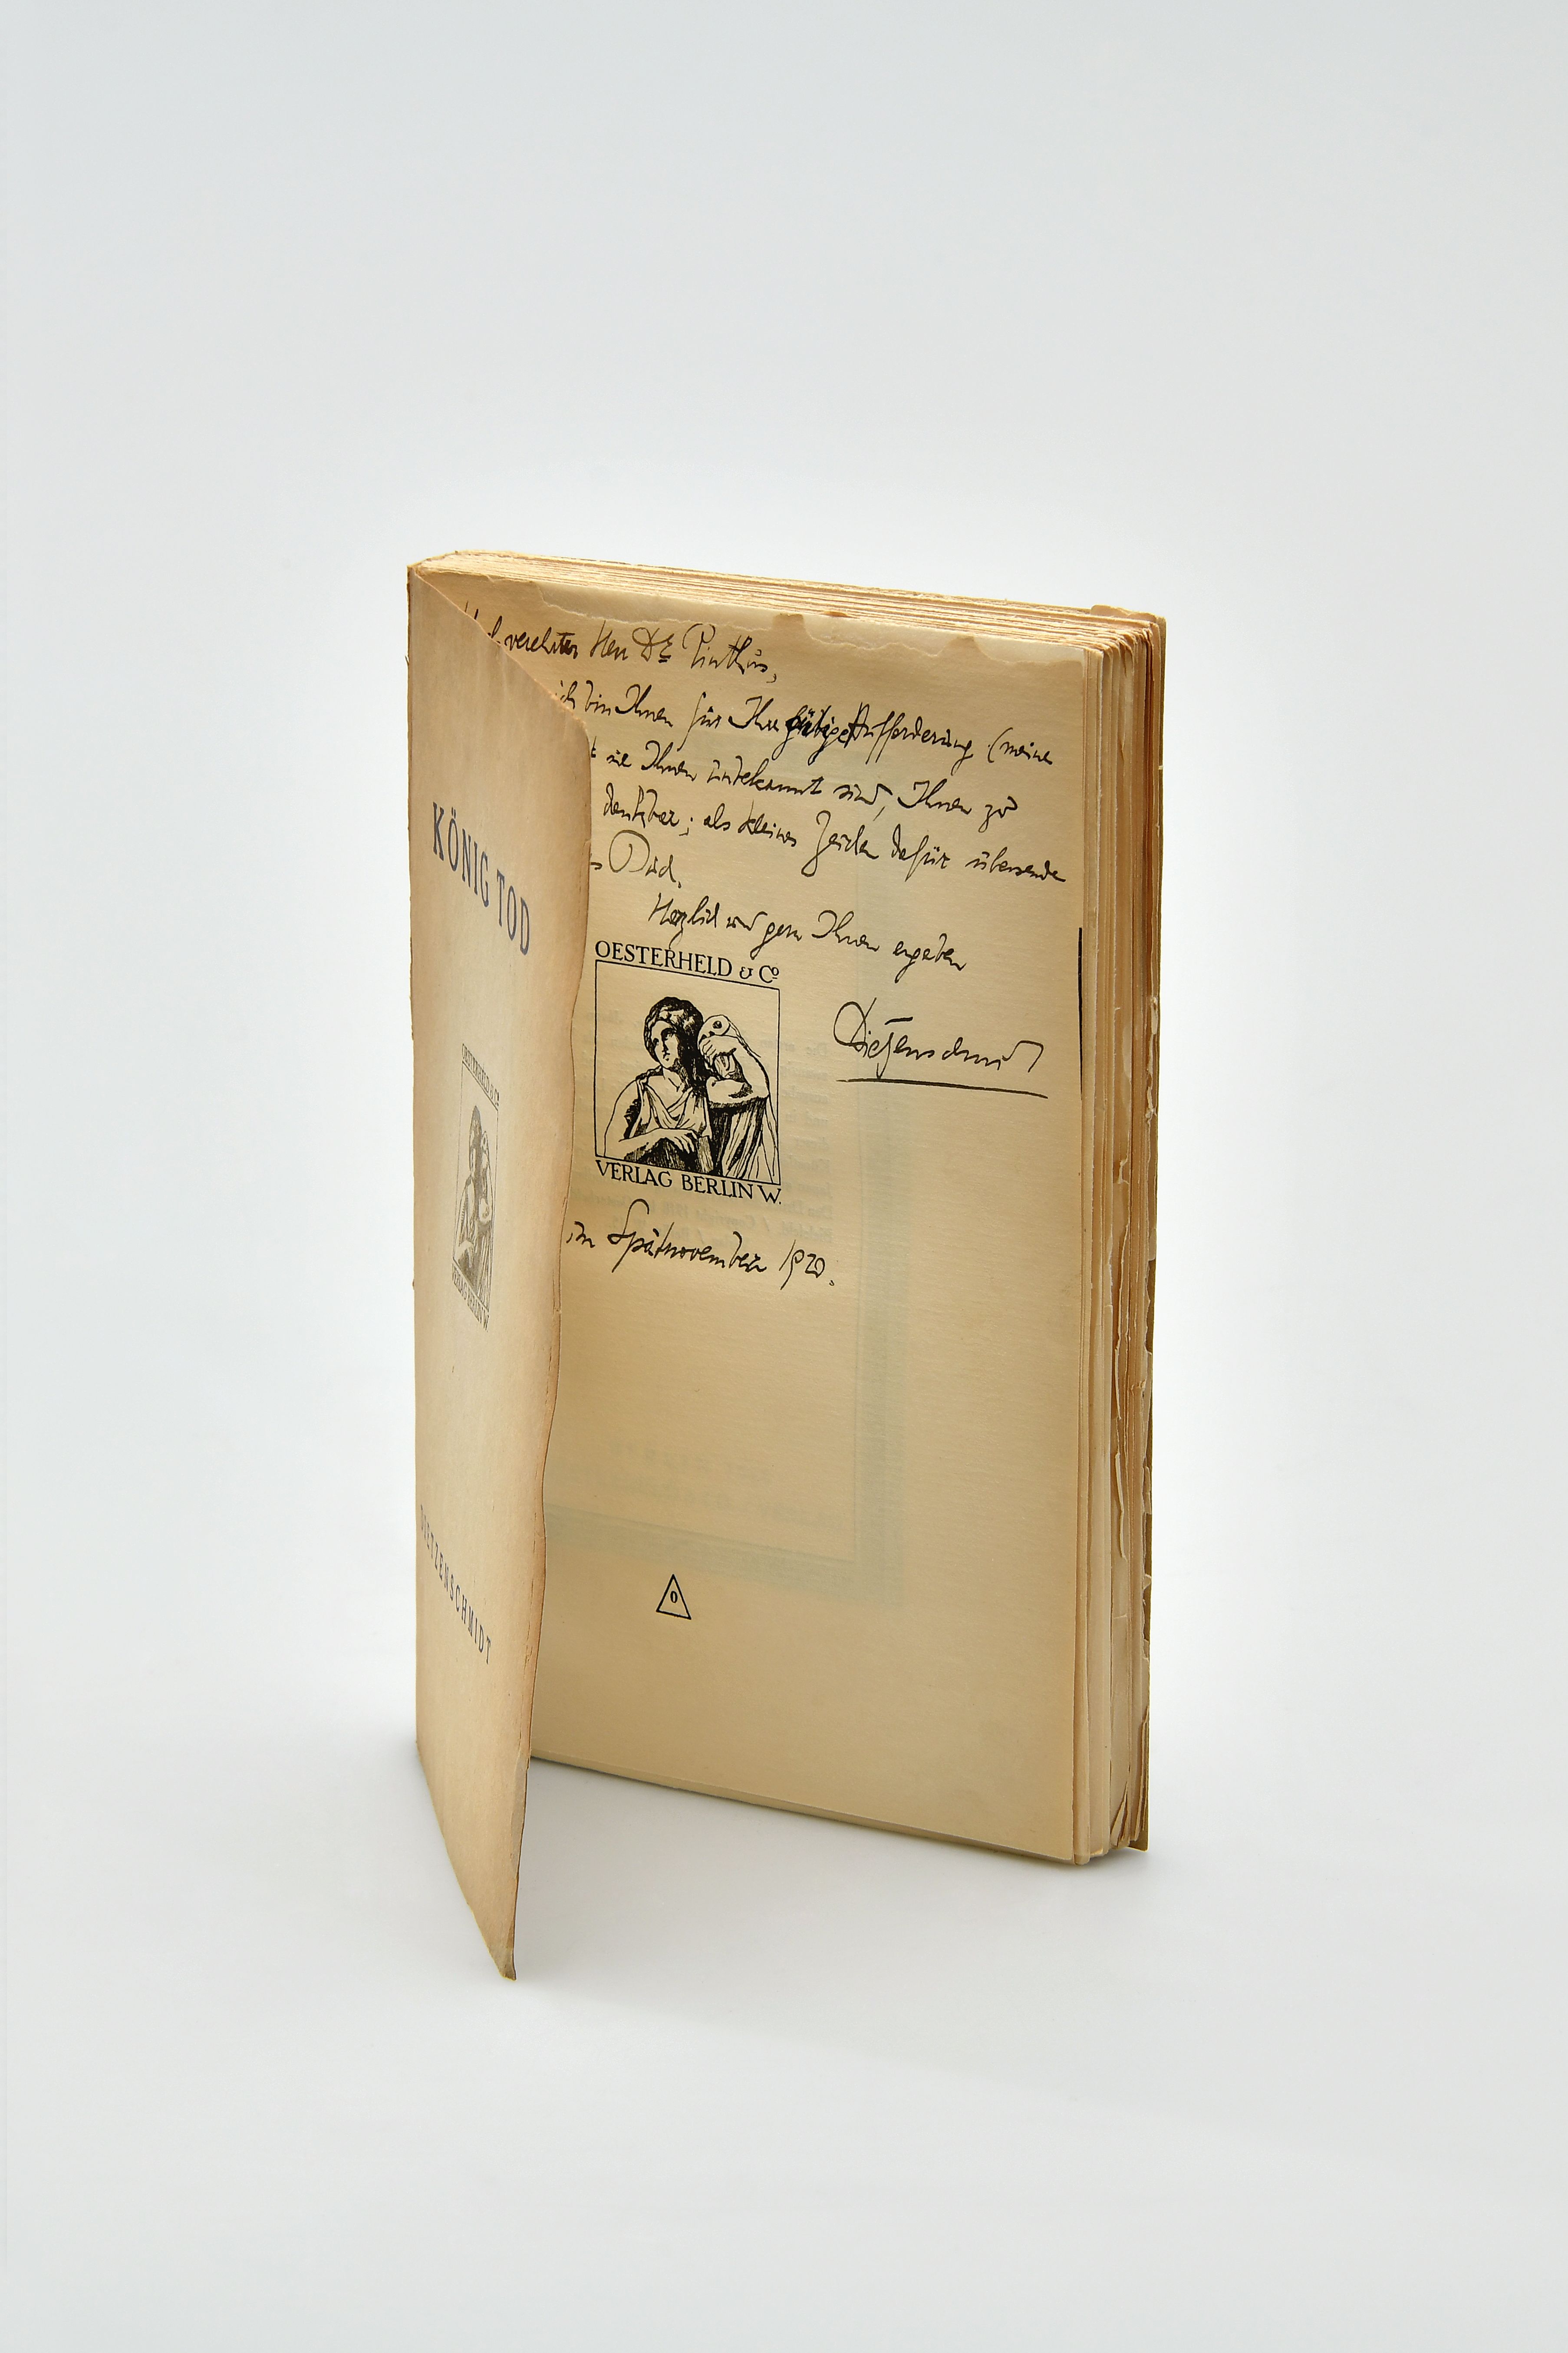 KÖNIG TOD
OESTERHELD & Co
VERLAG BERLIN W.
DIETZENSCHMIDT
verehrter Herr Dr Pinthus,
ich bin Ihnen für Ihre gütige Aufforderung (meine
sie Ihnen unbekannt sind, Ihnen zu
dankbar; als kleines Zeichen dafür übersende
Buch.
Herzlich und gern Ihnen ergeben
OESTERHELD & Co
Dietzenschmidt
VERLAG BERLIN W.
im Spätnovember 1920.
O